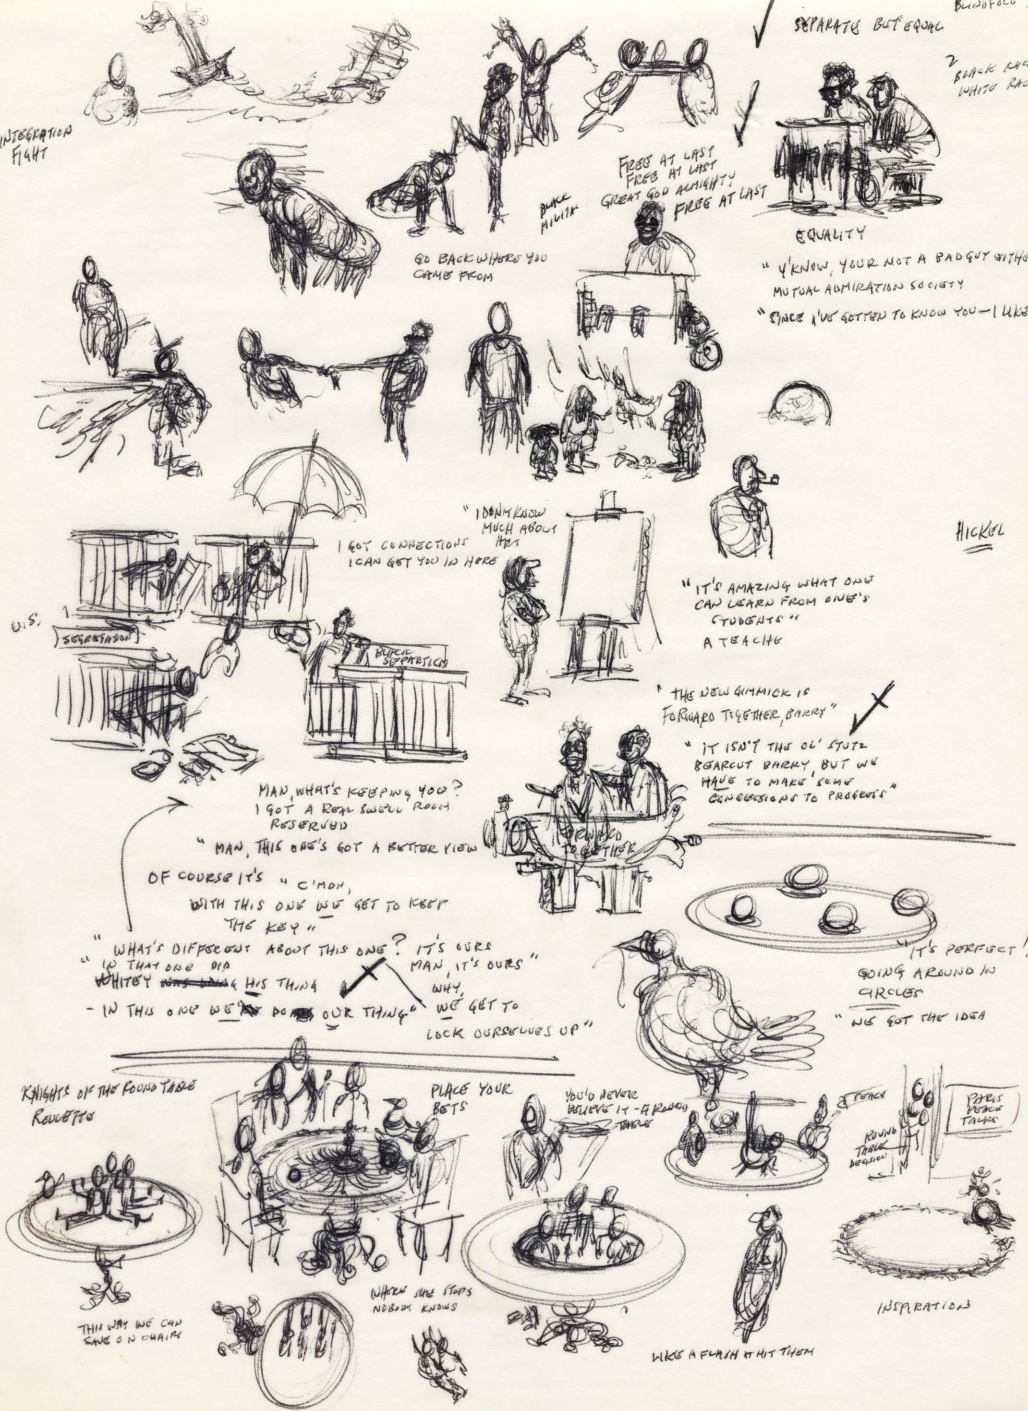 BLINDFOLD
SEPARATE BUT EQUAL
2
BLACK RAC
WHITE RAC
INTEGRATION
FIGHT
FREE AT LAST
FREE AT LAST
GREAT GOD ALMIGHTY
FREE AT LAST
BLACK
GO BACK WHERE YOU
CAME FROM
EQUALITY
" Y'KNOW, YOUR NOT A BAD GUY EITHE
MUTUAL ADMIRATION SOCIETY
"SINCE I'VE GOTTEN TO KNOW YOU—I LIKE
"I DON'T KNOW
MUCH ABOUT
ART
I GOT CONNECTIONS
I CAN GET YOU IN HERE
HICKEL
"IT'S AMAZING WHAT ONE
CAN LEARN FROM ONE'S
STUDENTS"
A TEACHE
U.S.
SEGREGATION
BLACK
SEPARATISM
"THE NEW GIMMICK IS
FORWARD TOGETHER, BARRY"
"IT ISN'T THE OL' STUTZ
BEARCUT BARRY BUT WE
HAVE TO MAKE SOME
CONCESSIONS TO PROGRESS"
FORWARD
TOGETHER
MAN, WHAT'S KEEPING YOU?
I GOT A REAL SWELL ROOM
RESERVED
"MAN, THIS ONE'S GOT A BETTER VIEW
OF COURSE IT'S "C'MON,
WITH THIS ONE WE GET TO KEEP
THE KEY"
"WHAT'S DIFFERENT ABOUT THIS ONE? IT'S OURS
MAN, IT'S OURS"
"IN THAT ONE DID
WHITEY WAS DOING HIS THING
- IN THIS ONE WE DO OUR THING"
WHY,
WE GET TO
LOCK OURSELVES UP"
"IT'S PERFECT!
GOING AROUND IN
CIRCLES
"WE GOT THE IDEA
KNIGHTS OF THE ROUND TABLE
ROULETTE
PLACE YOUR
BETS
YOU'D NEVER
BELIEVE IT - A ROUND
TABLE
PEACE
ROUND
TABLE
DECISION
PARIS
PEACE
TALKS
THIS WAY WE CAN
SAVE ON CHAIRS
WHERE SHE STOPS
NOBODY KNOWS
LIKE A FLASH IT HIT THEM
INSPIRATION